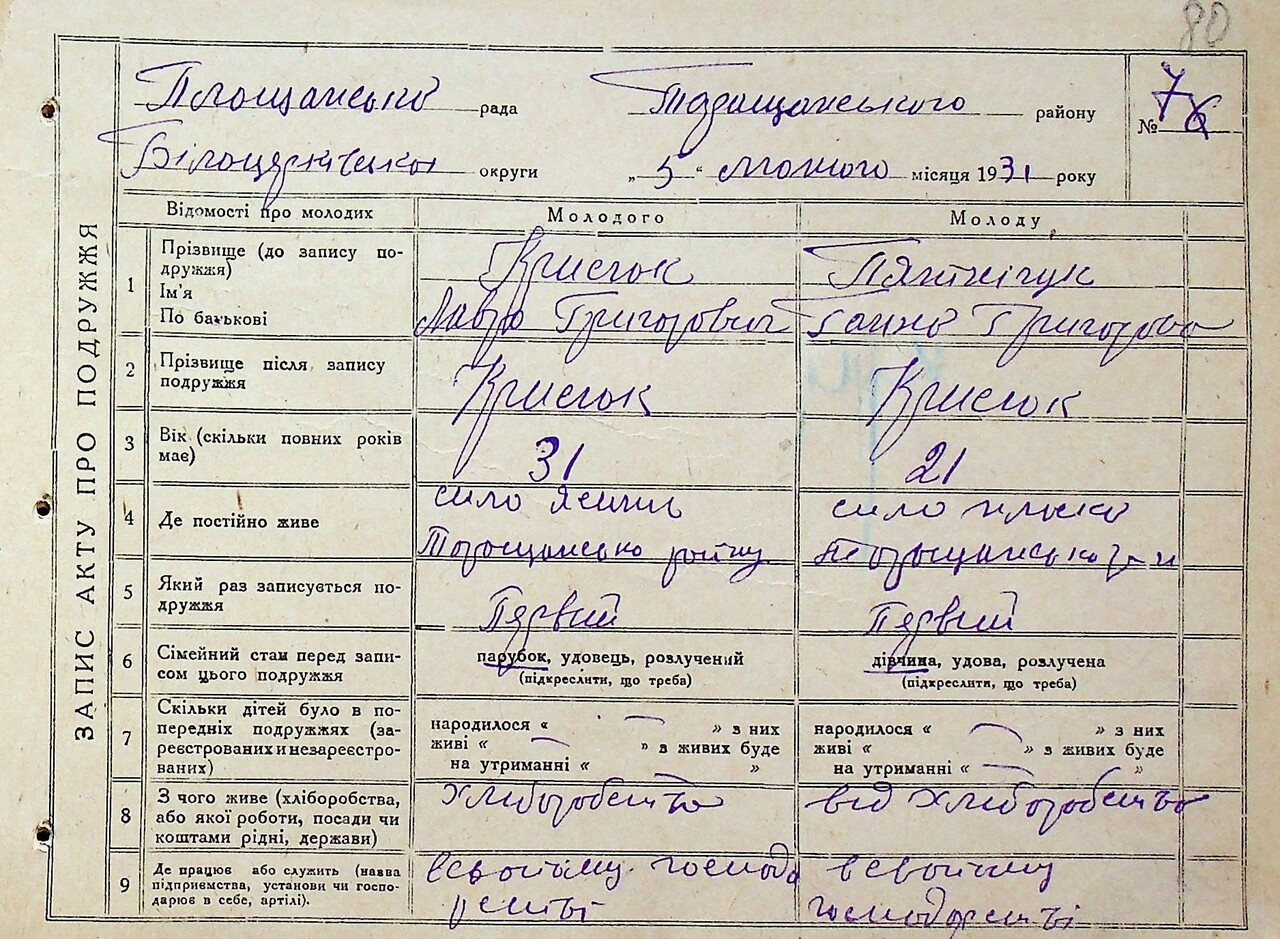 80
Площанська рада Таращанського району № 76
Білоцерківська округи „ 5 “ лютого місяця 1931 року
ЗАПИС АКТУ ПРО ПОДРУЖЖЯ
Відомості про молодих Молодого Молоду
1 Прізвище (до запису по-
дружжя)
Ім'я
По батькові
Крисюк
Григорович
Григорова
2 Прізвище після запису
подружжя
Крисюк Крисюк
3 Вік (скільки повних років
має)
31 21
4 Де постійно живе
сило сило
5 Який раз записується по-
дружжя
Первий Первий
6 Сімейний стан перед запи-
сом цього подружжя
парубок, удовець, розлучений
(підкреслити, що треба)
дівчина, удова, розлучена
(підкреслити, що треба)
7 Скільки дітей було в по-
передніх подружжях (за-
реєстрованих и незареєстро-
ваних)
народилося « — » з них
живі « — » з живих буде
на утриманні « »
народилося « — » з них
живі « — » з живих буде
на утриманні « — »
8 З чого живе (хліборобства,
або якої роботи, посади чи
коштами рідні, держави)
хлиборобство
від хлиборобство
9 Де працює або служить (назва
підприємства, установи чи госпо-
дарює в себе, артілі).
всвойому господа
рстві
всвойому
господарстві